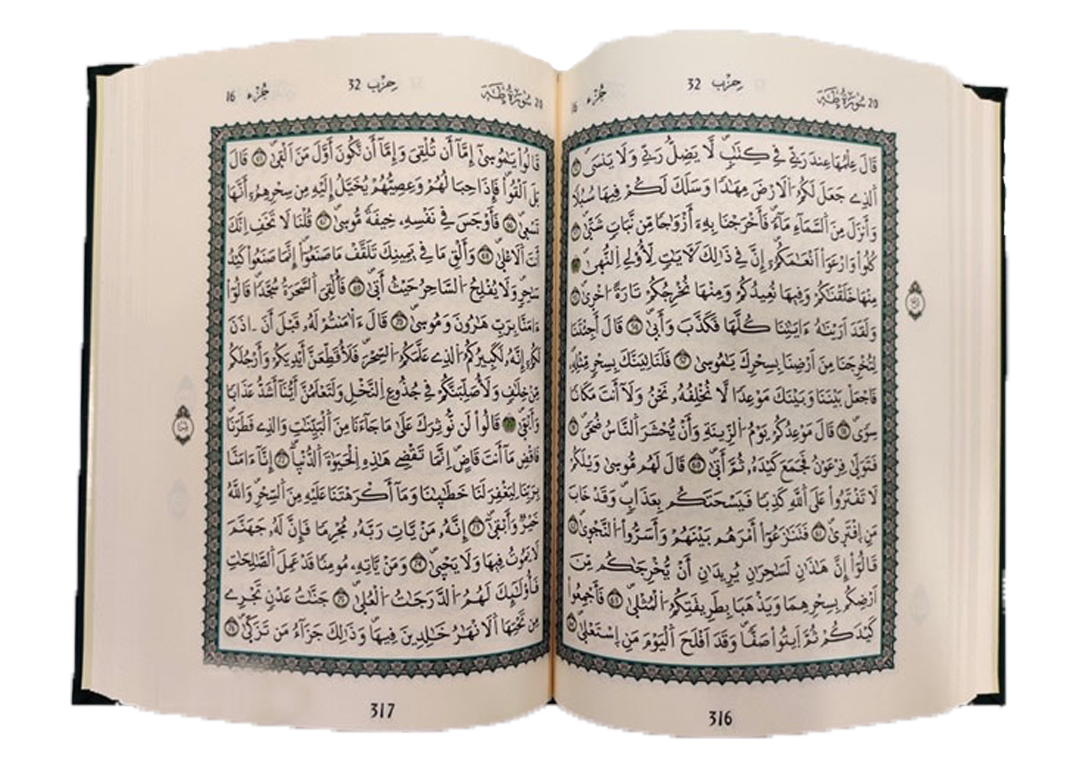 20 سُورَةُ طَهَ حِزْب 32 جُزْء 16
قَالَ عِلْمُهَا عِندَ رَبِّي فِي كِتَٰبٍ لَّا يَضِلُّ رَبِّي وَلَا يَنسَى
اَ۬لذِے جَعَلَ لَكُمُ اُ۬لَارْضَ مِهَٰداً وَسَلَكَ لَكُمْ فِيهَا سُبُلاً
وَأَنزَلَ مِنَ اَ۬لسَّمَآءِ مَآءً فَأَخْرَجْنَا بِهِۦٓ أَزْوَٰجاً مِّن نَّبَاتٍ شَتَّىٰ
كُلُواْ وَارْعَوَاْ اَنْعَٰمَكُمُۥٓ إِنَّ فِي ذَٰلِكَ ءَلَايَٰتٍ لِّأُوْلِے اِ۬لنُّهَىٰ
مِنْهَا خَلَقْنَٰكُمْ وَفِيهَا نُعِيدُكُمْ وَمِنْهَا نُخْرِجُكُمْ تَارَةً اُخْرَىٰ
وَلَقَدَ اَرَيْنَٰهُ ءَايَٰتِنَا كُلَّهَا فَكَذَّبَ وَأَبَىٰ قَالَ أَجِئْتَنَا
لِتُخْرِجَنَا مِنَ اَرْضِنَا بِسِحْرِكَ يَٰمُوسَىٰ فَلَنَاتِيَنَّكَ بِسِحْرٍ مِّثْلِهِۦ
فَاجْعَلْ بَيْنَنَا وَبَيْنَكَ مَوْعِداً لَّا نُخْلِفُهُۥ نَحْنُ وَلَآ أَنتَ مَكَاناً
سِوىً قَالَ مَوْعِدُكُمْ يَوْمُ اُ۬لزِّينَةِ وَأَنْ يُّحْشَرَ اَ۬لنَّاسُ ضُحىً
فَتَوَلَّىٰ فِرْعَوْنُ فَجَمَعَ كَيْدَهُۥ ثُمَّ أَتَىٰ قَالَ لَهُم مُّوسَىٰ وَيْلَكُمْ
لَا تَفْتَرُواْ عَلَى اَ۬للَّهِ كَذِباً فَيَسْحَتَكُم بِعَذَابٍ وَقَدْ خَابَ
مَنِ اِ۪فْتَرَىٰ فَتَنَٰزَعُوٓاْ أَمْرَهُم بَيْنَهُمْ وَأَسَرُّواْ اُ۬لنَّجْوَىٰ
قَالُوٓاْ إِنَّ هَٰذَٰنِ لَسَٰحِرَٰنِ يُرِيدَٰنِ أَنْ يُّخْرِجَٰكُم مِّنَ
اَرْضِكُم بِسِحْرِهِمَا وَيَذْهَبَا بِطَرِيقَتِكُمُ اُ۬لْمُثْلَىٰ فَأَجْمِعُواْ
كَيْدَكُمْ ثُمَّ اَ۪يتُواْ صَفّاً وَقَدَ اَفْلَحَ اَ۬لْيَوْمَ مَنِ اِ۪سْتَعْلَىٰ
316
20 سُورَةُ طَهَ حِزْب 32 جُزْء 16
قَالُواْ يَٰمُوسَىٰٓ إِمَّآ أَن تُلْقِيَ وَإِمَّآ أَن نَّكُونَ أَوَّلَ مَنَ اَلْقَىٰ قَالَ
بَلَ اَلْقُواْ فَإِذَا حِبَالُهُمْ وَعِصِيُّهُمْ يُخَيَّلُ إِلَيْهِ مِن سِحْرِهِمُۥٓ أَنَّهَا
تَسْعَىٰ فَأَوْجَسَ فِي نَفْسِهِۦ خِيفَةً مُّوسَىٰ قُلْنَا لَا تَخَفِ اِنَّكَ
أَنتَ اَ۬لَاعْلَىٰ وَأَلْقِ مَا فِي يَمِينِكَ تَلَقَّفْ مَا صَنَعُوٓاْ إِنَّمَا صَنَعُواْ كَيْدُ
سَٰحِرٍ وَلَا يُفْلِحُ اُ۬لسَّاحِرُ حَيْثُ أَتَىٰ فَأُلْقِيَ اَ۬لسَّحَرَةُ سُجَّداً قَالُوٓاْ
ءَامَنَّا بِرَبِّ هَٰرُونَ وَمُوسَىٰ قَالَ ءَٰا۬مَنتُمْ لَهُۥ قَبْلَ أَنَ اٰذَنَ
لَكُمُۥٓ إِنَّهُۥ لَكَبِيرُكُمُ اُ۬لذِے عَلَّمَكُمُ اُ۬لسِّحْرَ فَلَأُقَطِّعَنَّ أَيْدِيَكُمْ وَأَرْجُلَكُم
مِّنْ خِلَٰفٍ وَلَأُصَلِّبَنَّكُمْ فِي جُذُوعِ اِ۬لنَّخْلِ وَلَتَعْلَمُنَّ أَيُّنَآ أَشَدُّ عَذَاباً
وَأَبْقَىٰ قَالُواْ لَن نُّوثِرَكَ عَلَىٰ مَا جَآءَنَا مِنَ اَ۬لْبَيِّنَٰتِ وَالذِے فَطَرَنَا
فَاقْضِ مَآ أَنتَ قَاضٍ اِنَّمَا تَقْضِے هَٰذِهِ اِ۬لْحَيَوٰةَ اَ۬لدُّنْيَآ إِنَّآ ءَامَنَّا
بِرَبِّنَا لِيَغْفِرَ لَنَا خَطَٰيَٰنَا وَمَآ أَكْرَهْتَنَا عَلَيْهِ مِنَ اَ۬لسِّحْرِ وَاللَّهُ
خَيْرٌ وَأَبْقَىٰ إِنَّهُۥ مَنْ يَّاتِ رَبَّهُۥ مُجْرِماً فَإِنَّ لَهُۥ جَهَنَّمَ
لَا يَمُوتُ فِيهَا وَلَا يَحْيَىٰ وَمَنْ يَّاتِهِۦ مُومِناً قَدْ عَمِلَ اَ۬لصَّٰلِحَٰتِ
فَأُوْلَٰٓئِكَ لَهُمُ اُ۬لدَّرَجَٰتُ اُ۬لْعُلَىٰ جَنَّٰتُ عَدْنٍ تَجْرِے
مِن تَحْتِهَا اَ۬لَانْهَٰرُ خَٰلِدِينَ فِيهَا وَذَٰلِكَ جَزَآءُ مَن تَزَكَّىٰ
317